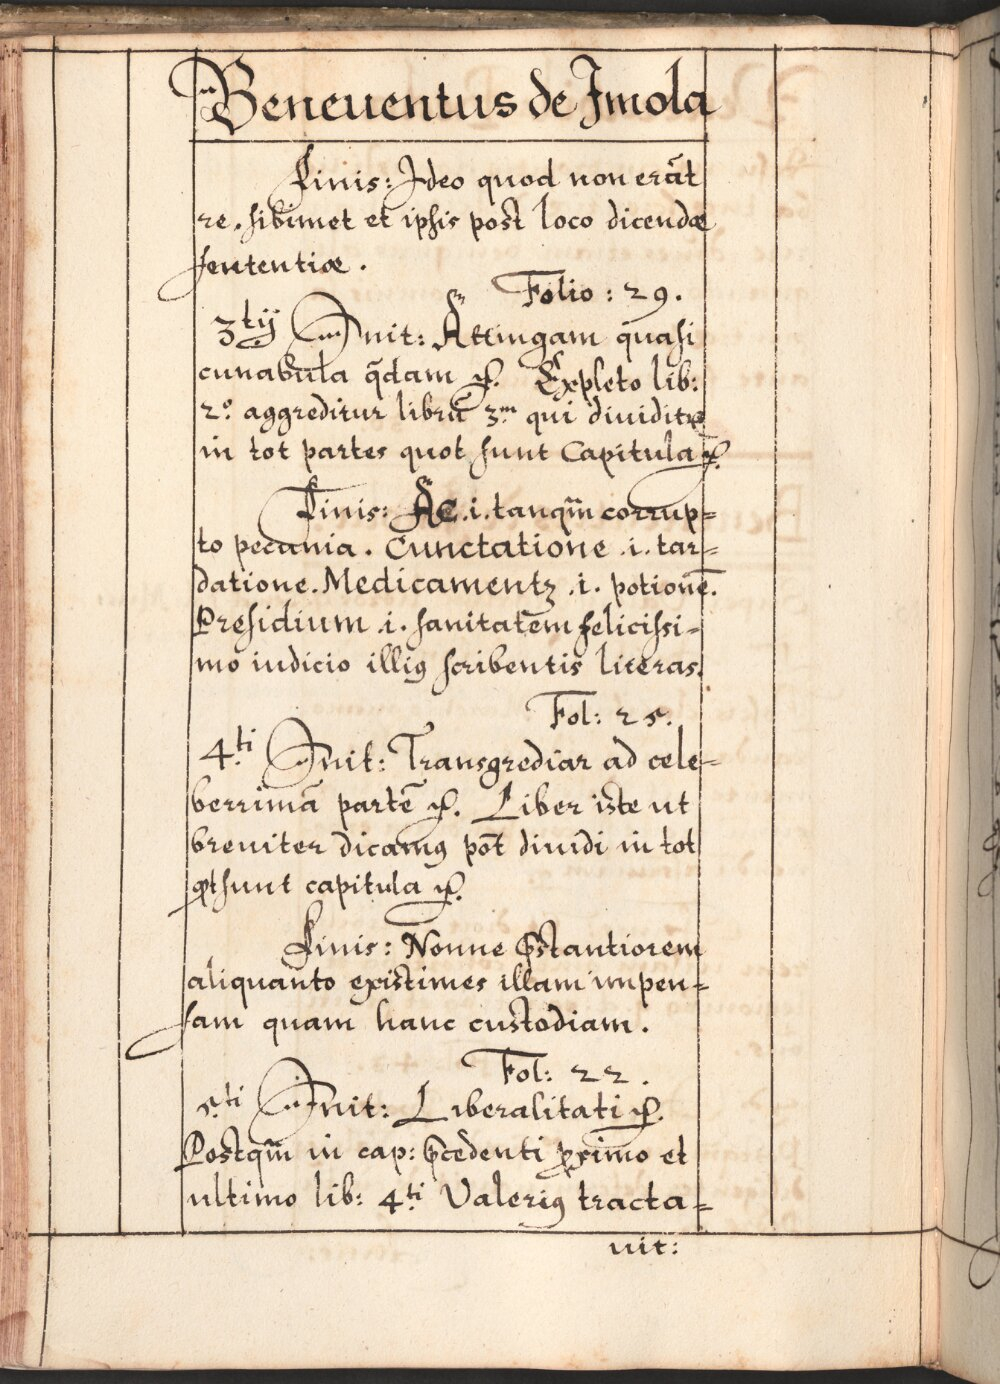 Beneuentus de Imola
Finis: Ideo quod non erāt
re. sibimet et ipsis post loco dicendæ
sententiæ.
Folio: 29.
3.tij Init: Attingam quasi
cunabula q̄dam &. Expleto lib:
2.o aggreditur librū 3.m qui diuiditur
in tot partes quot sunt Capitula &.
Finis: Ac .i. tanqm̄ corrup=
to pecunia. Cunctatione .i. tar=
datione. Medicamentz .i. potionē.
Presidium .i. sanitatem felicissi=
mo iudicio illiꝰ scribentis literas.
Fol: 25.
4.ti Init: Transgrediar ad cele=
berrimā partē &. Liber iste ut
breuiter dicamꝰ pōt diuidi in tot
qt sunt capitula &.
Finis: Nonne p̄stantiorem
aliquanto existimes illam impen=
sam quam hanc custodiam.
Fol: 22.
5.ti Init: Liberalitati &.
Postqm̄ in cap: p̄cedenti proximo et
ultimo lib: 4.ti Valeriꝰ tracta=
uit: